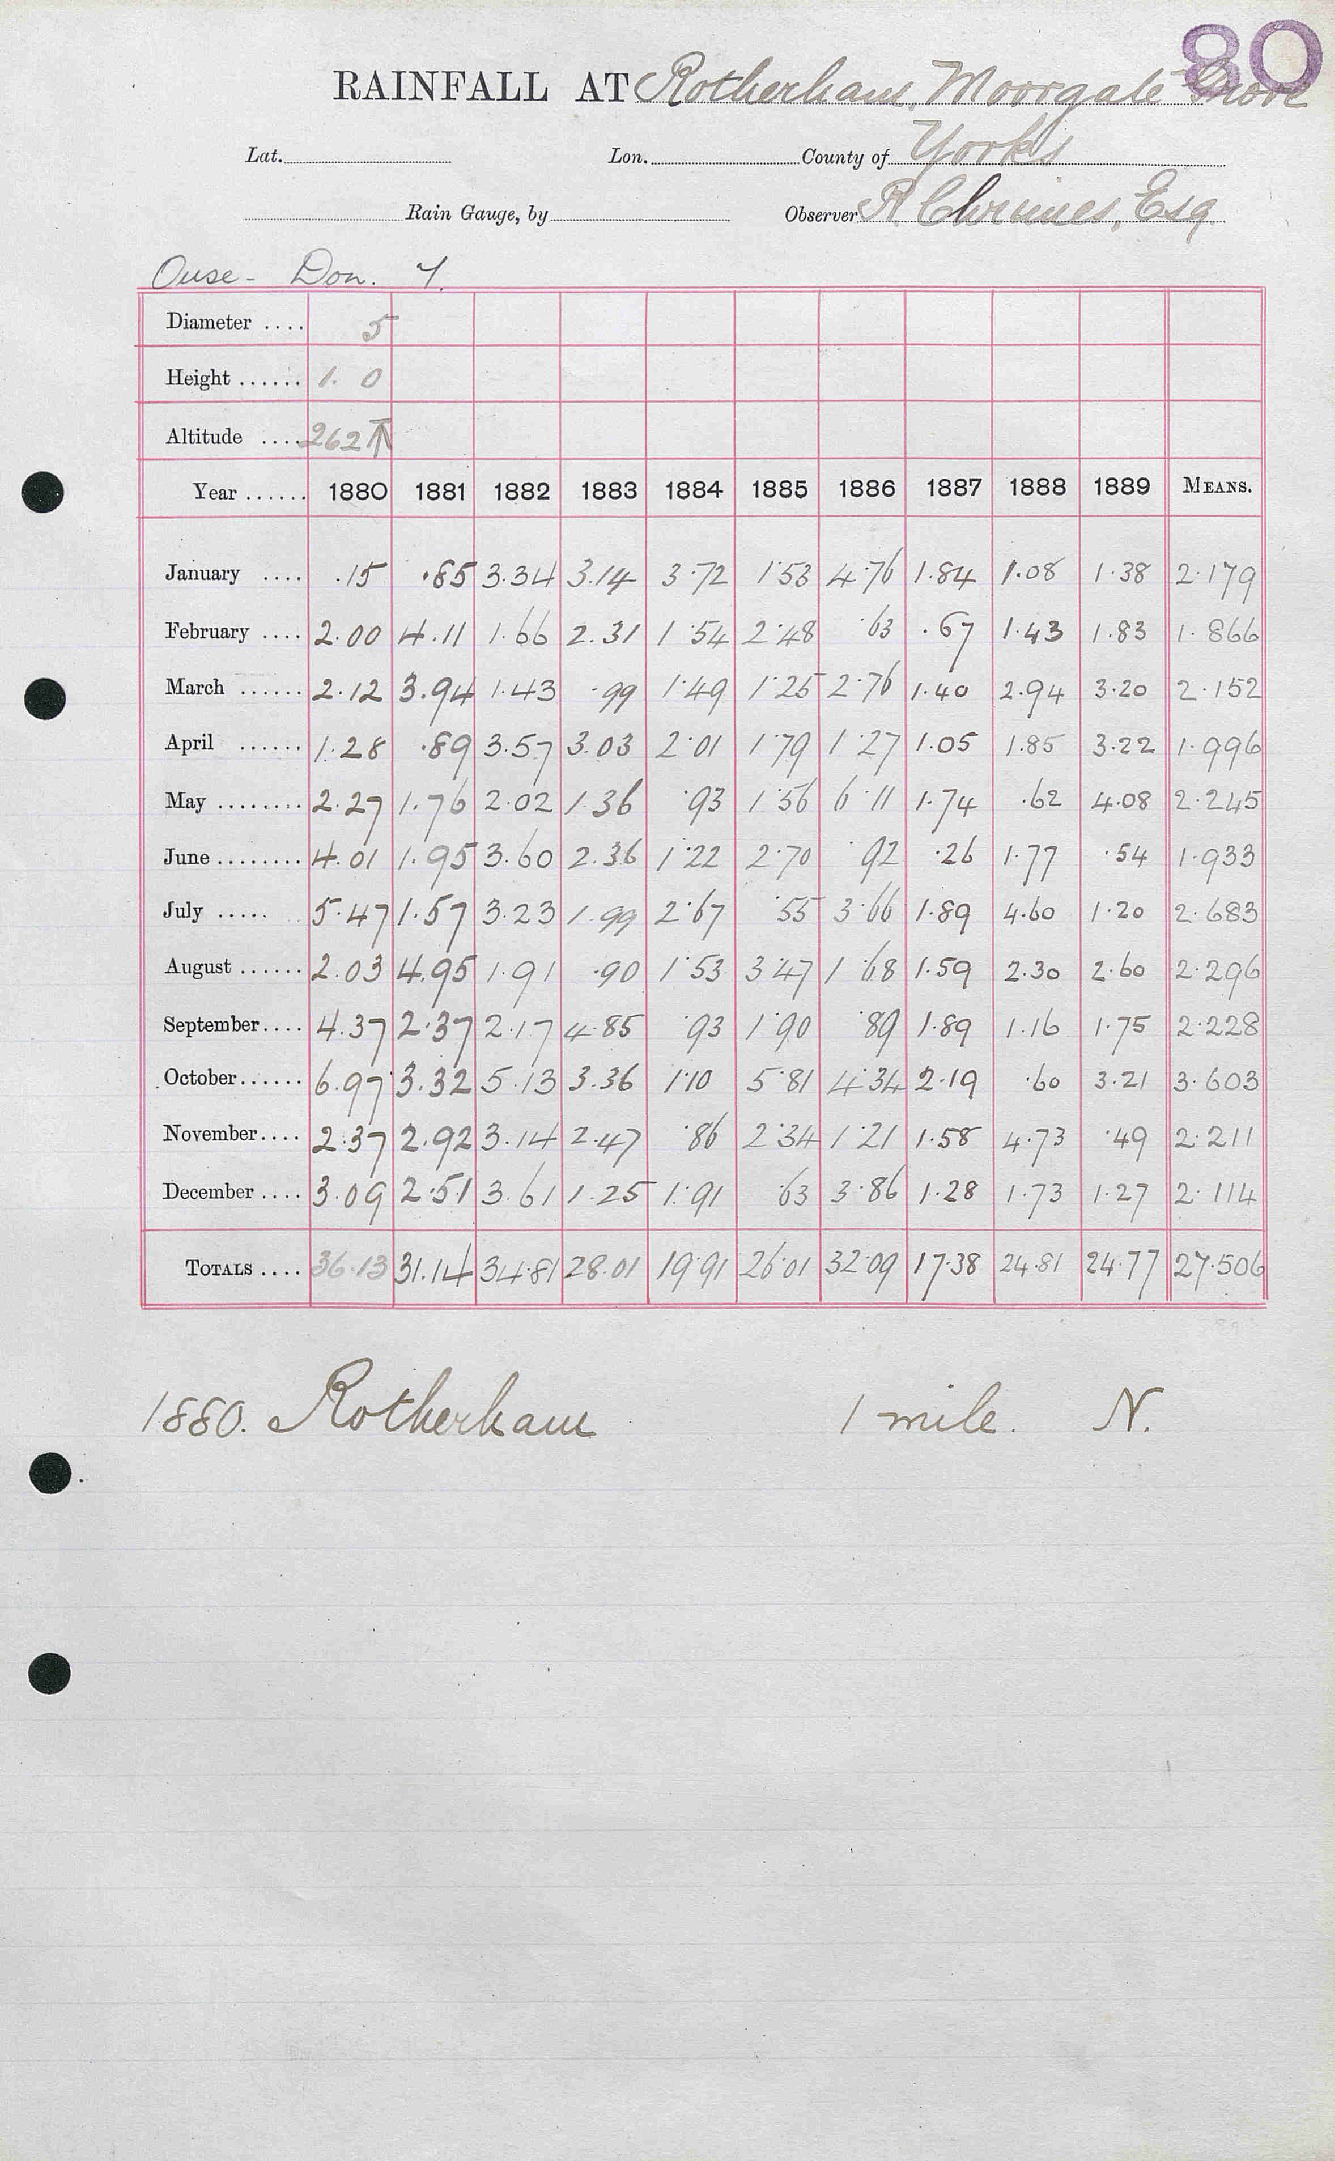 80
RAINFALL AT Rotherham, Moorgate Grove
Lat. Lon. County of Yorks
Rain Gauge, by Observer R. Chrimes, Esq.
Ouse - Don. Y.
Diameter .... 5
Height ...... 1. 0
Altitude .... 262 ↑
Year ...... 1880 1881 1882 1883 1884 1885 1886 1887 1888 1889 MEANS.
January .... .15 .85 3.34 3.14 3.72 1.53 4.76 1.84 1.08 1.38 2.179
February .... 2.00 4.11 1.66 2.31 1.54 2.48 .63 .67 1.43 1.83 1.866
March ...... 2.12 3.94 1.43 .99 1.49 1.25 2.76 1.40 2.94 3.20 2.152
April ...... 1.28 .89 3.57 3.03 2.01 1.79 1.27 1.05 1.85 3.22 1.996
May ........ 2.27 1.76 2.02 1.36 .93 1.56 6.11 1.74 .62 4.08 2.245
June ........ 4.01 1.95 3.60 2.36 1.22 2.70 .92 .26 1.77 .54 1.933
July ..... 5.47 1.57 3.23 1.99 2.67 .55 3.66 1.89 4.60 1.20 2.683
August ...... 2.03 4.95 1.91 .90 1.53 3.47 1.68 1.59 2.30 2.60 2.296
September.... 4.37 2.37 2.17 4.85 .93 1.90 .89 1.89 1.16 1.75 2.228
October...... 6.97 3.32 5.13 3.36 1.10 5.81 4.34 2.19 .60 3.21 3.603
November.... 2.37 2.92 3.14 2.47 .86 2.34 1.21 1.58 4.73 .49 2.211
December .... 3.09 2.51 3.61 1.25 1.91 .63 3.86 1.28 1.73 1.27 2.114
TOTALS .... 36.13 31.14 34.81 28.01 19.91 26.01 32.09 17.38 24.81 24.77 27.506
1880. Rotherham 1 mile. N.